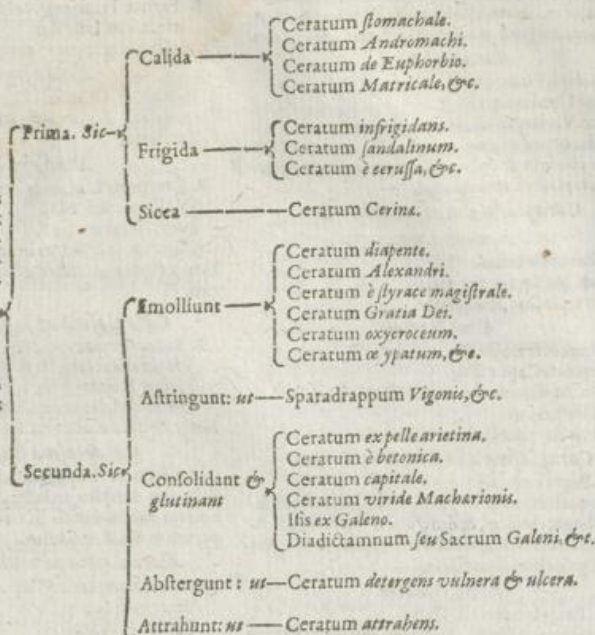 Prima. Sic
Calida
Ceratum ſtomachale.
Ceratum Andromachi.
Ceratum de Euphorbio.
Ceratum Matricale, &c.
Frigida
Ceratum infrigidans.
Ceratum ſandalinum.
Ceratum è ceruſſa, &c.
Sicca
Ceratum Cerinæ.
Secunda. Sic
Emolliunt
Ceratum diapente.
Ceratum Alexandri.
Ceratum è ſtyrace magiſtrale.
Ceratum Gratia Dei.
Ceratum oxycroceum.
Ceratum œ ypatum, &c.
Aſtringunt: ut
Sparadrappum Vigonis, &c.
Conſolidant &
glutinant
Ceratum ex pelle arietina.
Ceratum è betonica.
Ceratum capitale.
Ceratum viride Machærionis.
Iſis ex Galeno.
Diadictamnum ſeu Sacrum Galeni, &c.
Abſtergunt: ut
Ceratum detergens vulnera & ulcera.
Attrahunt: ut
Ceratum attrahens.